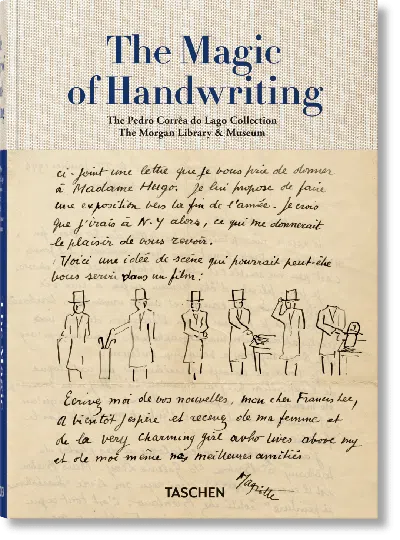 The Magic
of Handwriting
The Pedro Corrêa do Lago Collection
The Morgan Library & Museum
ci-joint une lettre que je vous prie de donner
à Madame Hugo. Je lui propose de faire
une exposition vers la fin de l'année. Je crois
que j'irais à N.Y alors, ce qui me donnerait
le plaisir de vous revoir.
Voici une idée de scène qui pourrait peut-être
vous servir dans un film :
Ecrivez moi de vos nouvelles, mon cher Francis Lee,
A bientôt j'espère et recevez de ma femme et
de la very charming girl who lives above my
et de moi même nos meilleures amitiés
Magritte
TASCHEN